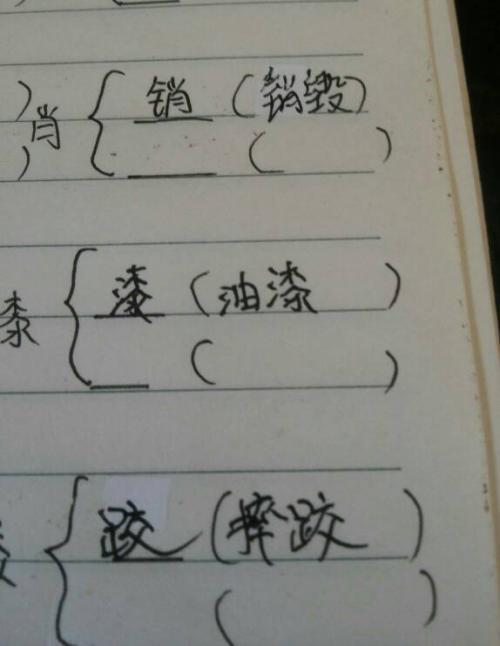 ) 肖 { 销 (销毁)
) ( )
桼 { 漆 (油漆 )
( )
{ 跤 (摔跤 )
( )